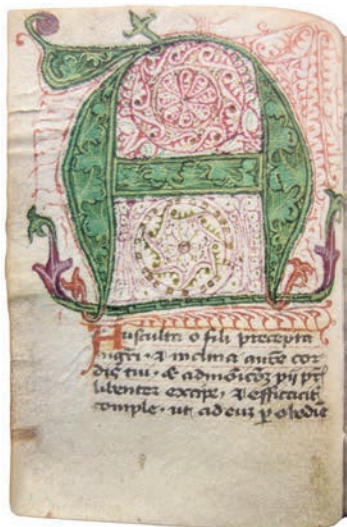 Ausculta o fili precepta
mgri · & inclina aurē cor
dis tui · & admōicōꝫ pij pr̄s
libenter excipe, & efficacit̄
comple · ut ad eūꝫ ꝑ obedie